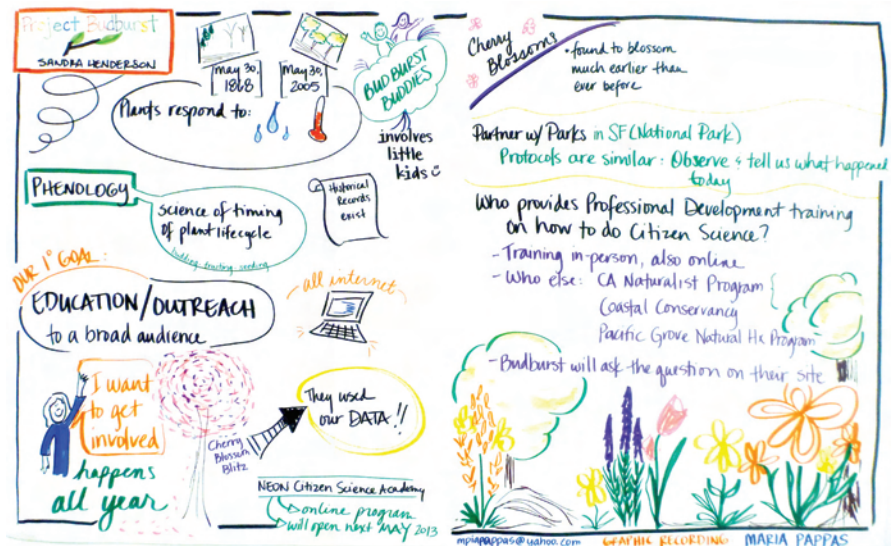 Project Budburst
SANDRA HENDERSON
May 30,
1868
May 30,
2005
BUDBURST
BUDDIES
involves
little
kids
Plants respond to:
PHENOLOGY
science of timing
of plant lifecycle
budding, fruiting, seeding
Historical
Records
exist
OUR 1° GOAL:
EDUCATION/OUTREACH
to a broad audience
all internet
I want
to get
involved
happens
all year
Cherry
Blossom
Blitz
They used
our DATA!!
NEON Citizen Science Academy
online program
will open next MAY 2013
Cherry
Blossoms
• found to blossom
much earlier than
ever before
Partner w/ Parks in SF (National Park)
Protocols are similar: Observe & tell us what happened
today
Who provides Professional Development training
on how to do Citizen Science?
- Training in-person, also online
- Who else: CA Naturalist Program
Coastal Conservancy
Pacific Grove Natural Hx Program
- Budburst will ask the question on their site
mpiapappas@yahoo.com GRAPHIC RECORDING MARIA PAPPAS